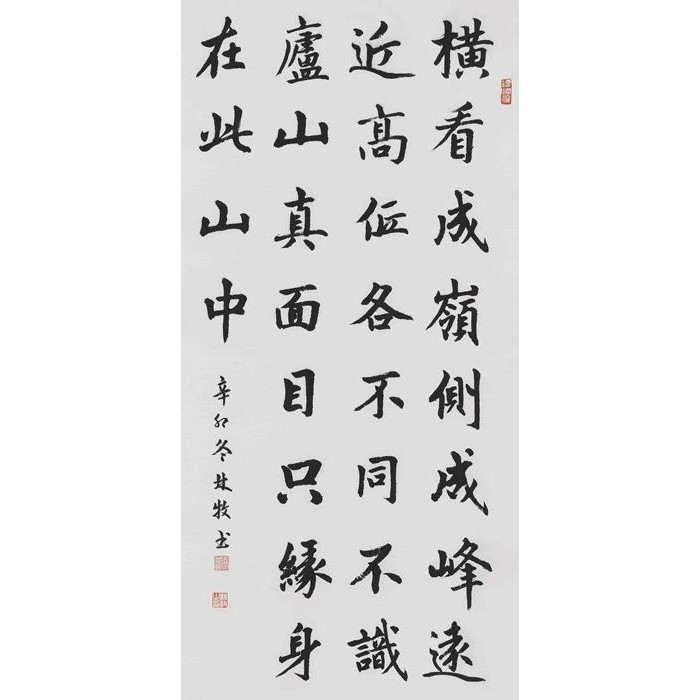 橫看成嶺側成峰遠
近高低各不同不識
廬山真面目只緣身
在此山中
辛卯冬林牧書